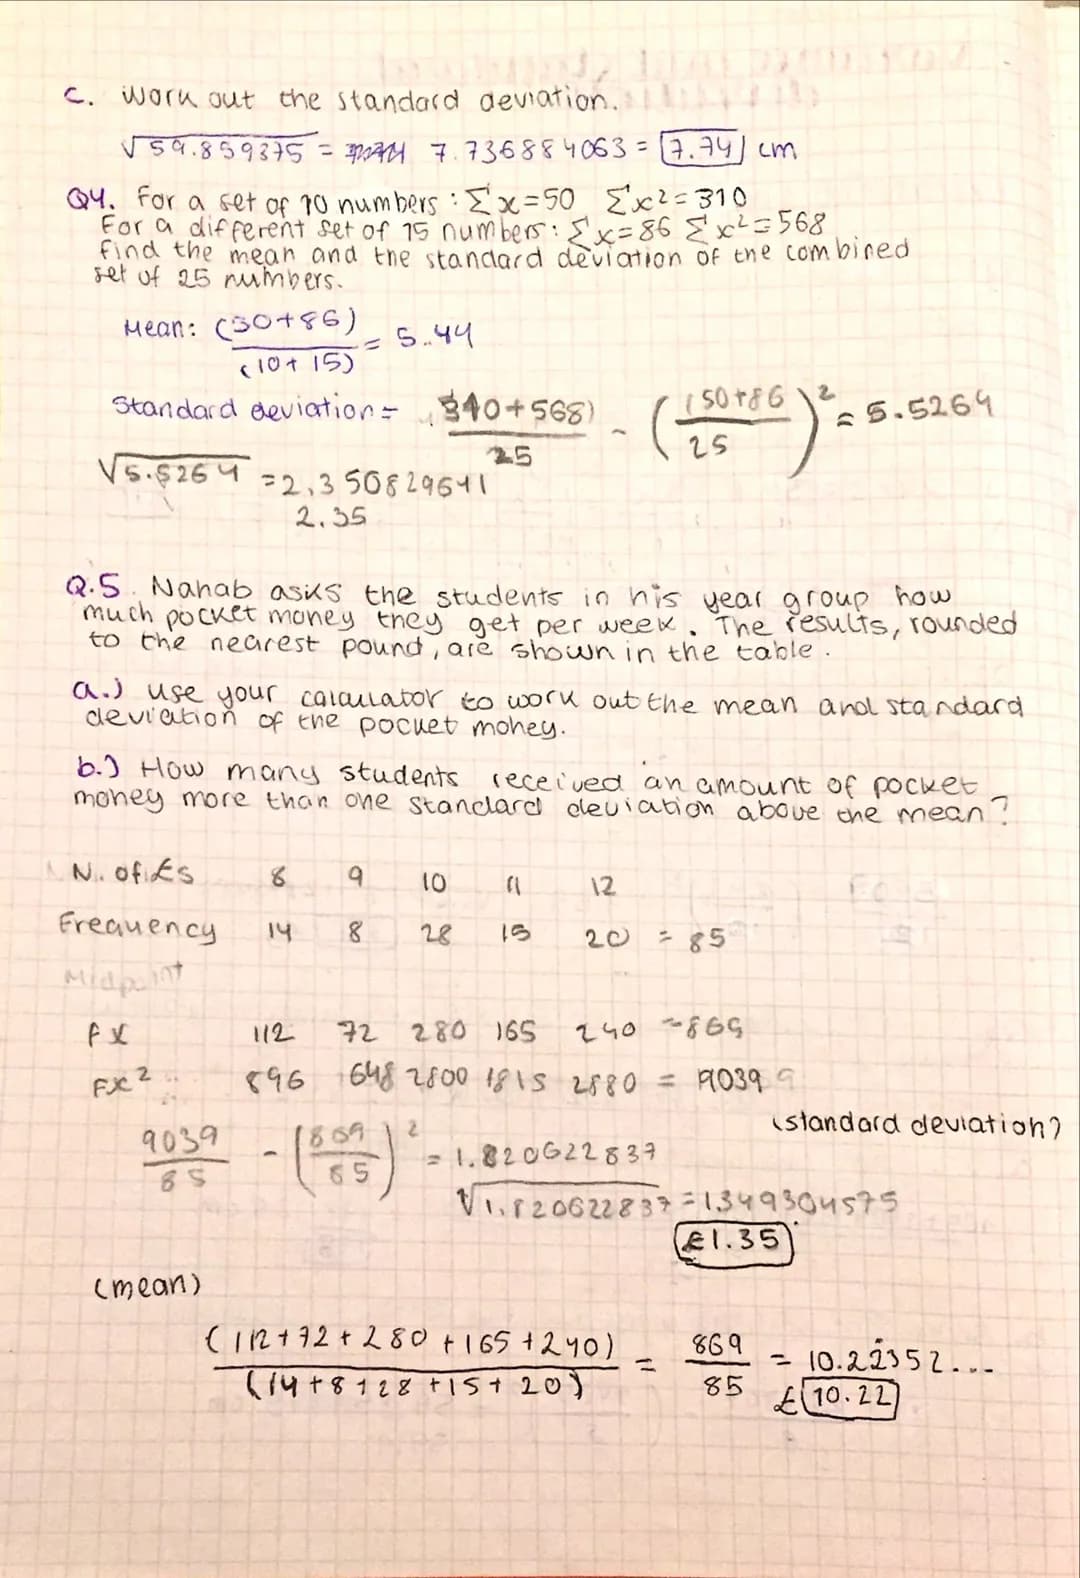 C. Work out the standard deviation.
√59.859375 = 7.736884063 = 7.74 cm
Q4. For a set of 10 numbers : Σx=50 Σx²=310
For a different set of 15 numbers: Σx=86 Σx²=568
Find the mean and the standard deviation of the combined
set of 25 numbers.
Mean: (50+86) / (10+15) = 5.44
Standard deviation = (310+568) / 25 - ((50+86) / 25)² = 5.5264
√5.5264 = 2,350829641
2.35
Q.5. Nahab asks the students in his year group how
much pocket money they get per week. The results, rounded
to the nearest pound, are shown in the table.
a.) use your calculator to work out the mean and standard
deviation of the pocket money.
b.) How many students received an amount of pocket
money more than one standard deviation above the mean?
N. of £s 8 9 10 11 12
Frequency 14 8 28 15 20 = 85
Midpoint
fx 112 72 280 165 240 = 869
Fx² 896 648 2800 1815 2880 = 9039
(standard deviation)
9039 / 85 - (869 / 85)² = 1.820622837
√1.820622837 = 1.349304575
£1.35
(mean)
(112+72+280+165+240) / (14+8+28+15+20) = 869 / 85 = 10.22352...
£10.22